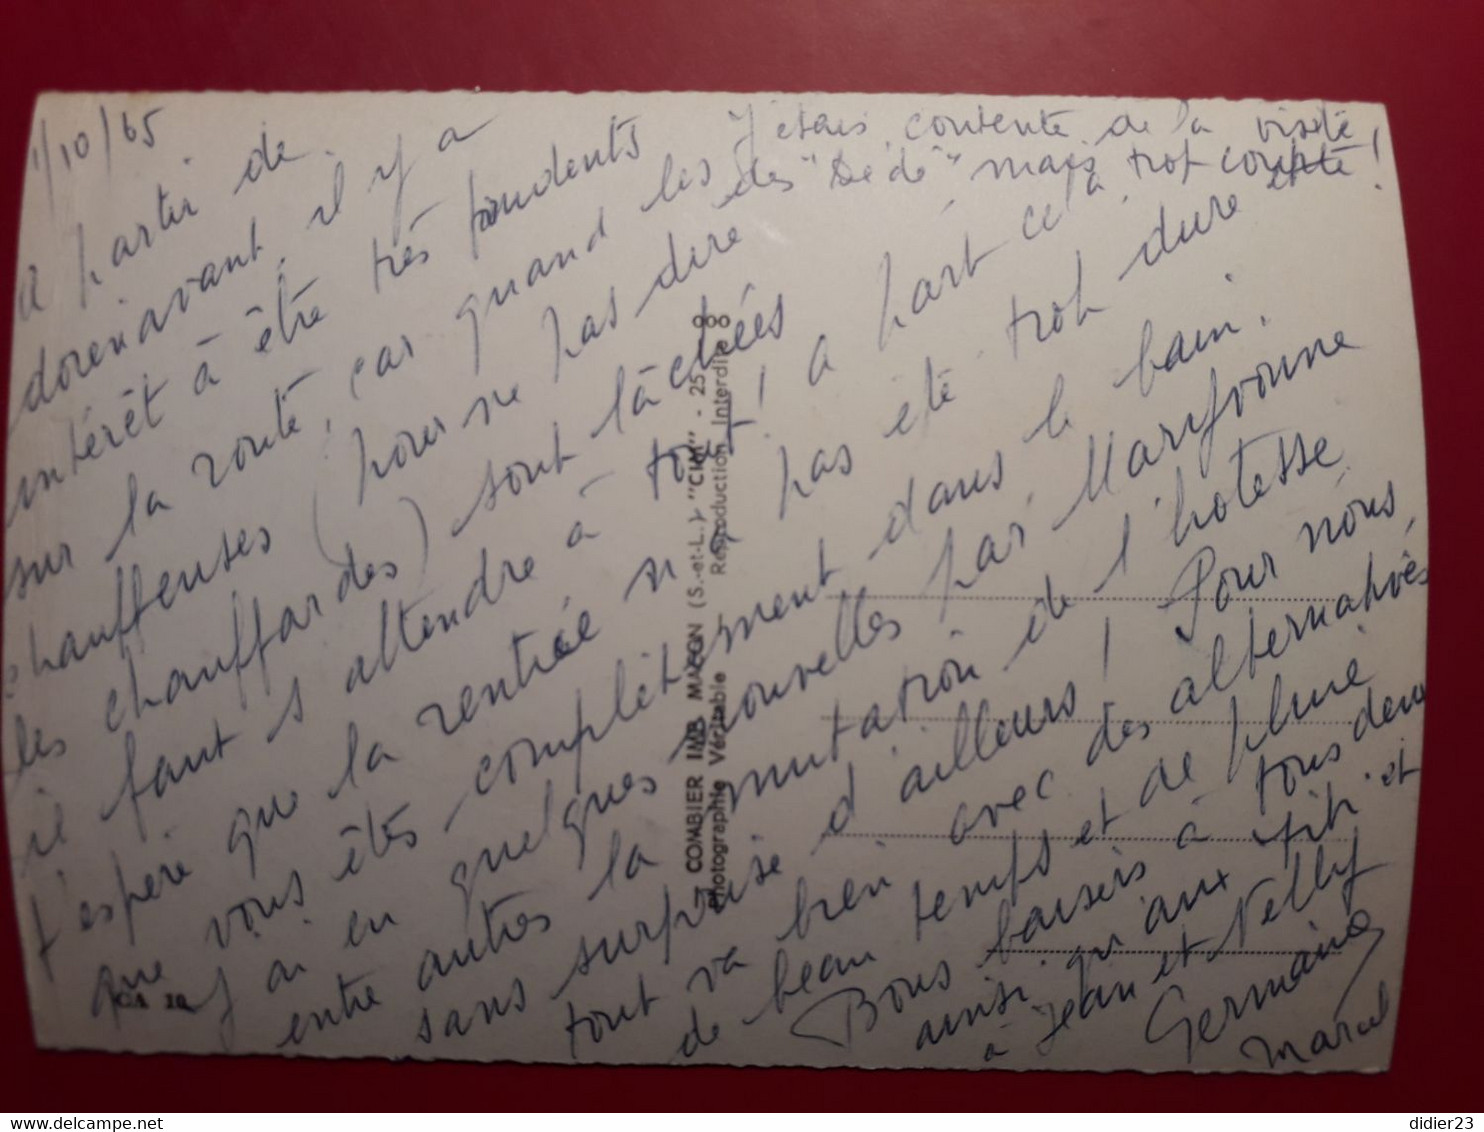 1/10/65
A partir de
dorénavant, il y a
intérêt à être très prudents
sur la route, car quand les
chauffeuses (pour ne pas dire
les chauffardes) sont lâchées
il faut s'attendre à tout! à part cela
J'espère que la rentrée n'a pas été trop dure et
que vous êtes complètement dans le bain.
J'ai eu quelques nouvelles par Maryvonne
entre autres la mutation de l'hotesse,
sans surprise d'ailleurs! Pour nous,
tout va bien avec des alternatives
de beau temps et de pluie
Bons baisers à tous deux
ainsi qu'aux Titi et
à Jean et Nelly
Germaine
Marcel
J'étais contente de la visite
des "Dédé" mais trop courte!
COMBIER IMP. MACON (S.-et-L.) "CIM" - 25
Photographie Véritable Reproduction Interdite
didier23